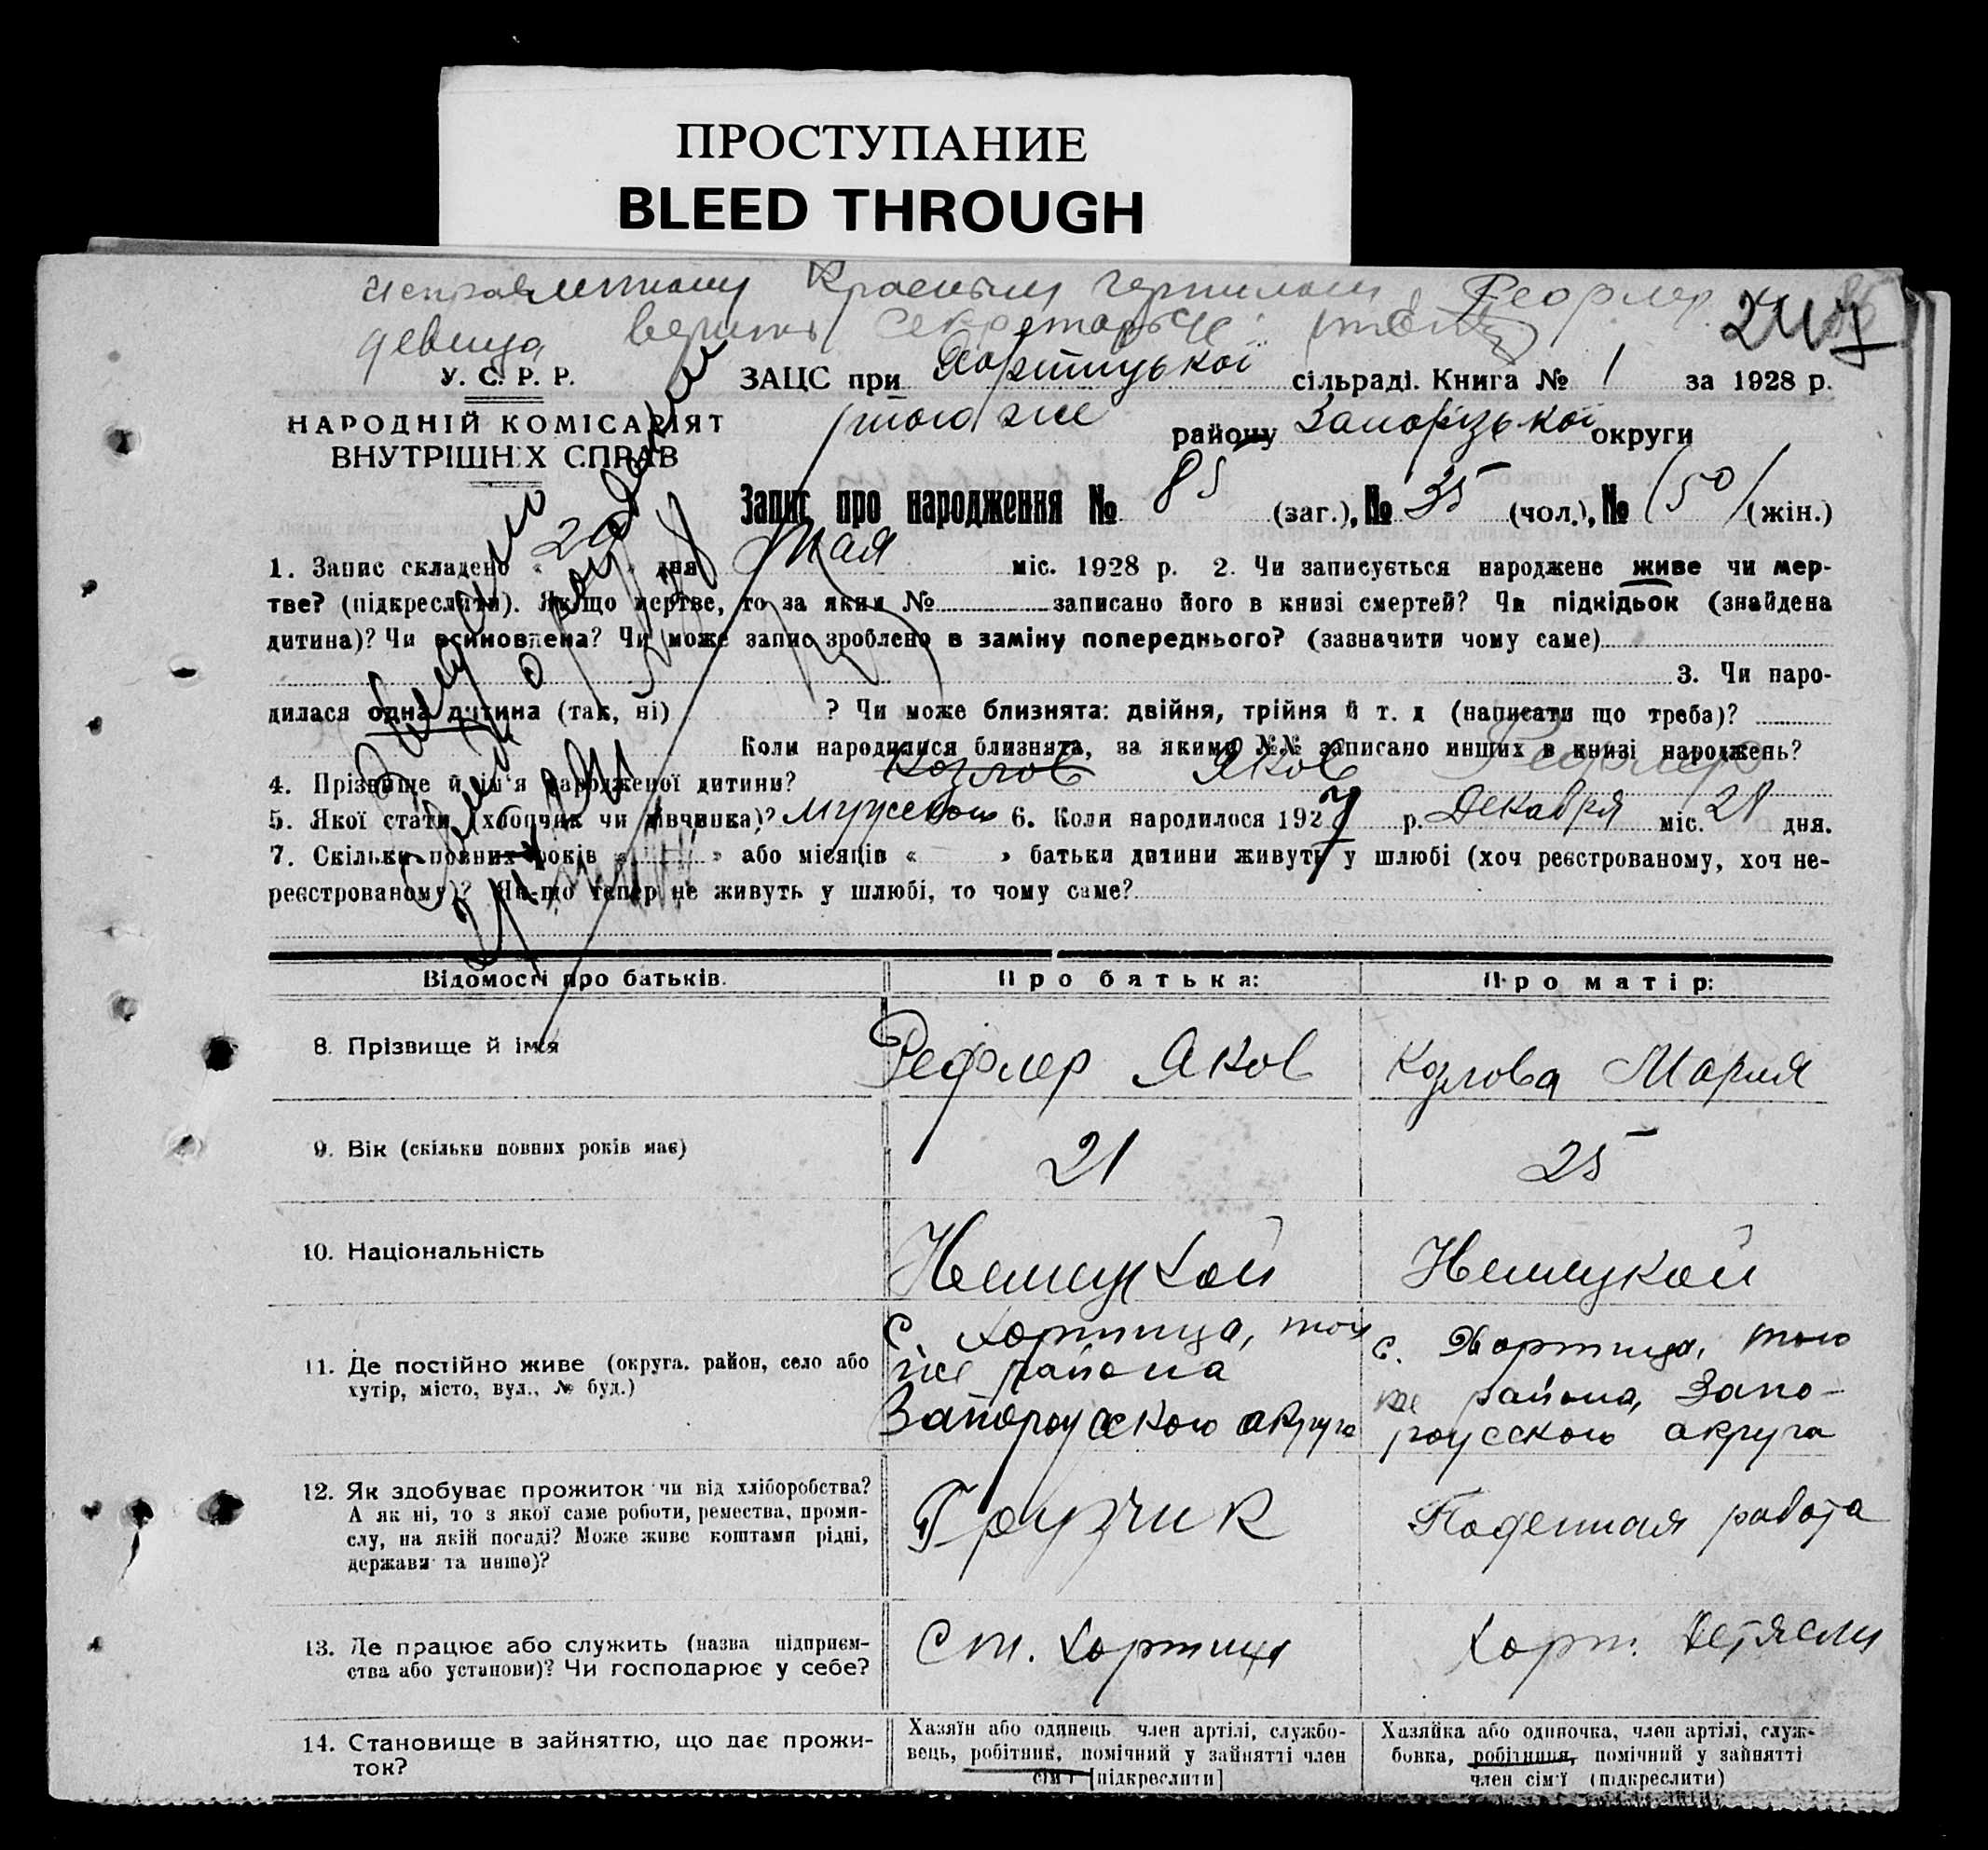 ПРОСТУПАНИЕ
BLEED THROUGH
Красными чернилами Рефлер
верить секретарь
247
У. С. Р. Р.
ЗАЦС при Хортицької сільраді. Книга № 1 за 1928 р.
НАРОДНІЙ КОМІСАРІЯТ
того же району Запорізької округи
ВНУТРІШНІХ СПРАВ
Запис про народження № 85 (заг.), № 35 (чол.), № (50) (жін.)
1. Запис складено « » дня Мая міс. 1928 р. 2. Чи записується народжене живе чи мер-
тве? (підкреслити). Як-що мертве, то за яким № записано його в книзі смертей? Чи підкідьок (знайдена
дитина)? Чи всиновлена? Чи може запис зроблено в заміну попереднього? (зазначити чому саме)
3. Чи наро-
дилася одна дитина (так, ні) ? Чи може близнята: двійня, трійня й т. д (написати що треба)?
Коли народилися близнята, за якими №№ записано инших в книзі народжень?
4. Прізвище й ім'я народженої дитини? Козлов Яков Рефлер
5. Якої статі (хлопчик чи дівчинка)? мужского 6. Коли народилося 1927 р. Декабря міс. 28 дня.
7. Скільки повних років « » або місяців « » батьки дитини живуть у шлюбі (хоч реєстрованому, хоч не-
реєстрованому)? Як-що тепер не живуть у шлюбі, то чому саме?
Відомості про батьків.
Про батька:
Про матір:
8. Прізвище й ім'я
Рефлер Яков
Козлова Мария
9. Вік (скільки повних років має)
21
25
10. Національність
Немецкой
Немецкой
11. Де постійно живе (округа, район, село або
хутір, місто, вул., № буд.)
с. Хортица, того
же района
Запорожского округа
с. Хортица, того
же района, Запо-
рожского округа
12. Як здобуває прожиток чи від хліборобства?
А як ні, то з якої саме роботи, ремества, проми-
слу, на якій посаді? Може живе коштами рідні,
держави та инше)?
Грузчик
Поденная работа
13. Де працює або служить (назва підприєм-
ства або установи)? Чи господарює у себе?
Ст. Хортица
Хорт. Детясли
14. Становище в зайняттю, що дає прожи-
ток?
Хазяїн або одинець, член артілі, службо-
вець, робітник, помічний у зайнятті член
сім'ї [підкреслити]
Хазяйка або одиночка, член артілі, служ-
бовка, робітниця, помічний у зайнятті
член сім'ї (підкреслити)